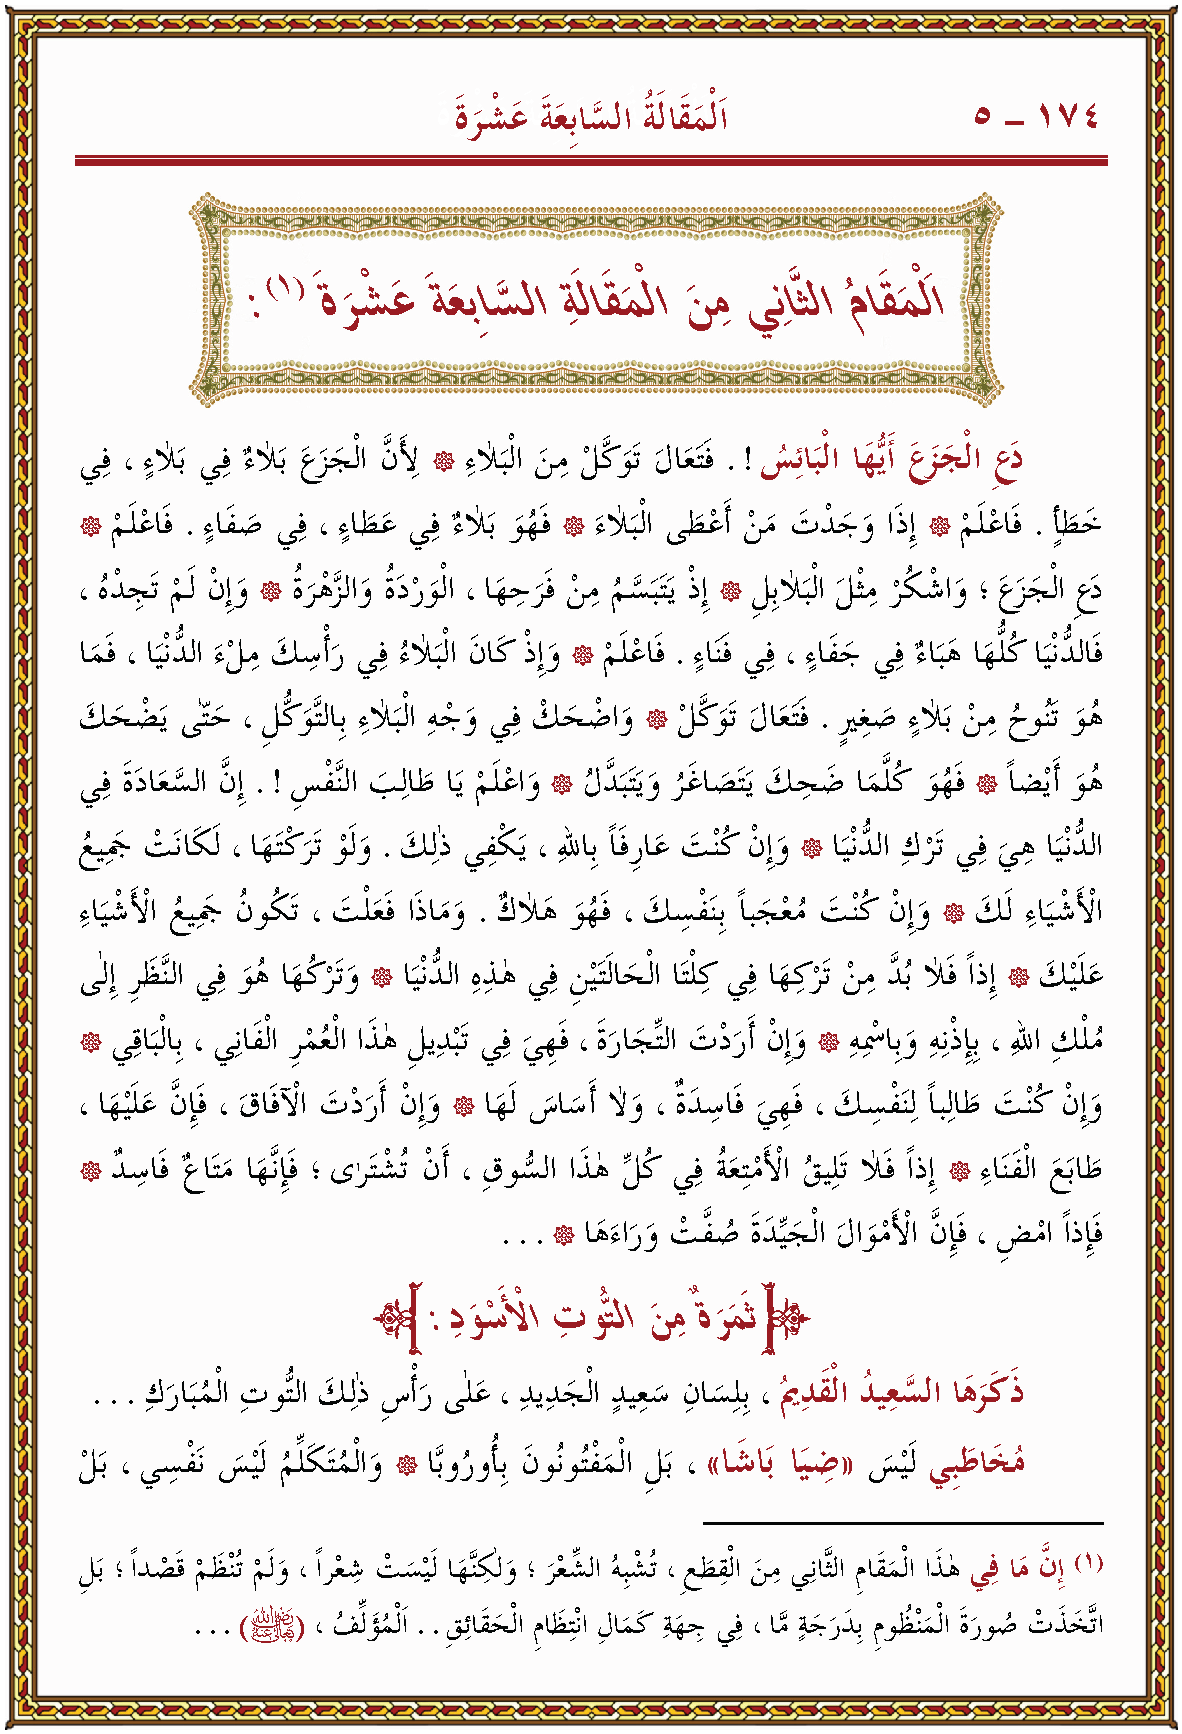 ١٧٤ ـ ٥ اَلْمَقَالَةُ السَّابِعَةَ عَشْرَةَ
اَلْمَقَامُ الثَّانِي مِنَ الْمَقَالَةِ السَّابِعَةَ عَشْرَةَ (١) :
دَعِ الْجَزَعَ أَيُّهَا الْبَائِسُ ! . فَتَعَالَ تَوَكَّلْ مِنَ الْبَلٰاءِ ۞ لِأَنَّ الْجَزَعَ بَلٰاءٌ فِي بَلٰاءٍ ، فِي
خَطَأٍ . فَاعْلَمْ ۞ إِذَا وَجَدْتَ مَنْ أَعْطَى الْبَلٰاءَ ۞ فَهُوَ بَلٰاءٌ فِي عَطَاءٍ ، فِي صَفَاءٍ . فَاعْلَمْ ۞
دَعِ الْجَزَعَ ؛ وَاشْكُرْ مِثْلَ الْبَلٰابِلِ ۞ إِذْ يَتَبَسَّمُ مِنْ فَرَحِهَا ، الْوَرْدَةُ وَالزَّهْرَةُ ۞ وَإِنْ لَمْ تَجِدْهُ ،
فَالدُّنْيَا كُلُّهَا هَبَاءٌ فِي جَفَاءٍ ، فِي فَنَاءٍ . فَاعْلَمْ ۞ وَإِذْ كَانَ الْبَلٰاءُ فِي رَأْسِكَ مِلْءَ الدُّنْيَا ، فَمَا
هُوَ تَنُوحُ مِنْ بَلٰاءٍ صَغِيرٍ . فَتَعَالَ تَوَكَّلْ ۞ وَاضْحَكْ فِي وَجْهِ الْبَلٰاءِ بِالتَّوَكُّلِ ، حَتّٰى يَضْحَكَ
هُوَ أَيْضاً ۞ فَهُوَ كُلَّمَا ضَحِكَ يَتَصَاغَرُ وَيَتَبَدَّلُ ۞ وَاعْلَمْ يَا طَالِبَ النَّفْسِ ! . إِنَّ السَّعَادَةَ فِي
الدُّنْيَا هِيَ فِي تَرْكِ الدُّنْيَا ۞ وَإِنْ كُنْتَ عَارِفاً بِاللهِ ، يَكْفِي ذٰلِكَ . وَلَوْ تَرَكْتَهَا ، لَكَانَتْ جَمِيعُ
الْأَشْيَاءِ لَكَ ۞ وَإِنْ كُنْتَ مُعْجَباً بِنَفْسِكَ ، فَهُوَ هَلَاكٌ . وَمَاذَا فَعَلْتَ ، تَكُونُ جَمِيعُ الْأَشْيَاءِ
عَلَيْكَ ۞ إِذاً فَلٰا بُدَّ مِنْ تَرْكِهَا فِي كِلْتَا الْحَالَتَيْنِ فِي هٰذِهِ الدُّنْيَا ۞ وَتَرْكُهَا هُوَ فِي النَّظَرِ إِلٰى
مُلْكِ اللهِ ، بِإِذْنِهِ وَبِاسْمِهِ ۞ وَإِنْ أَرَدْتَ التِّجَارَةَ ، فَهِيَ فِي تَبْدِيلِ هٰذَا الْعُمْرِ الْفَانِي ، بِالْبَاقِي ۞
وَإِنْ كُنْتَ طَالِباً لِنَفْسِكَ ، فَهِيَ فَاسِدَةٌ ، وَلٰا أَسَاسَ لَهَا ۞ وَإِنْ أَرَدْتَ الْآفَاقَ ، فَإِنَّ عَلَيْهَا ،
طَابَعَ الْفَنَاءِ ۞ إِذاً فَلٰا تَلِيقُ الْأَمْتِعَةُ فِي كُلِّ هٰذَا السُّوقِ ، أَنْ تُشْتَرٰى ؛ فَإِنَّهَا مَتَاعٌ فَاسِدٌ ۞
فَإِذاً امْضِ ، فَإِنَّ الْأَمْوَالَ الْجَيِّدَةَ صُفَّتْ وَرَاءَهَا ۞ . . .
ثَمَرَةٌ مِنَ التُّوتِ الْأَسْوَدِ :
ذَكَرَهَا السَّعِيدُ الْقَدِيمُ ، بِلِسَانِ سَعِيدٍ الْجَدِيدِ ، عَلٰى رَأْسِ ذٰلِكَ التُّوتِ الْمُبَارَكِ . . .
مُخَاطَبِي لَيْسَ «ضِيَا بَاشَا» ، بَلِ الْمَفْتُونُونَ بِأُورُوبَّا ۞ وَالْمُتَكَلِّمُ لَيْسَ نَفْسِي ، بَلْ
(١) إِنَّ مَا فِي هٰذَا الْمَقَامِ الثَّانِي مِنَ الْقِطَعِ ، تُشْبِهُ الشِّعْرَ ؛ وَلٰكِنَّهَا لَيْسَتْ شِعْراً ، وَلَمْ تُنْظَمْ قَصْداً ؛ بَلِ
اتَّخَذَتْ صُورَةَ الْمَنْظُومِ بِدَرَجَةٍ مَّا ، فِي جِهَةِ كَمَالِ انْتِظَامِ الْحَقَائِقِ . . اَلْمُؤَلِّفُ ، (رضي الله تعالى عنه) . . .